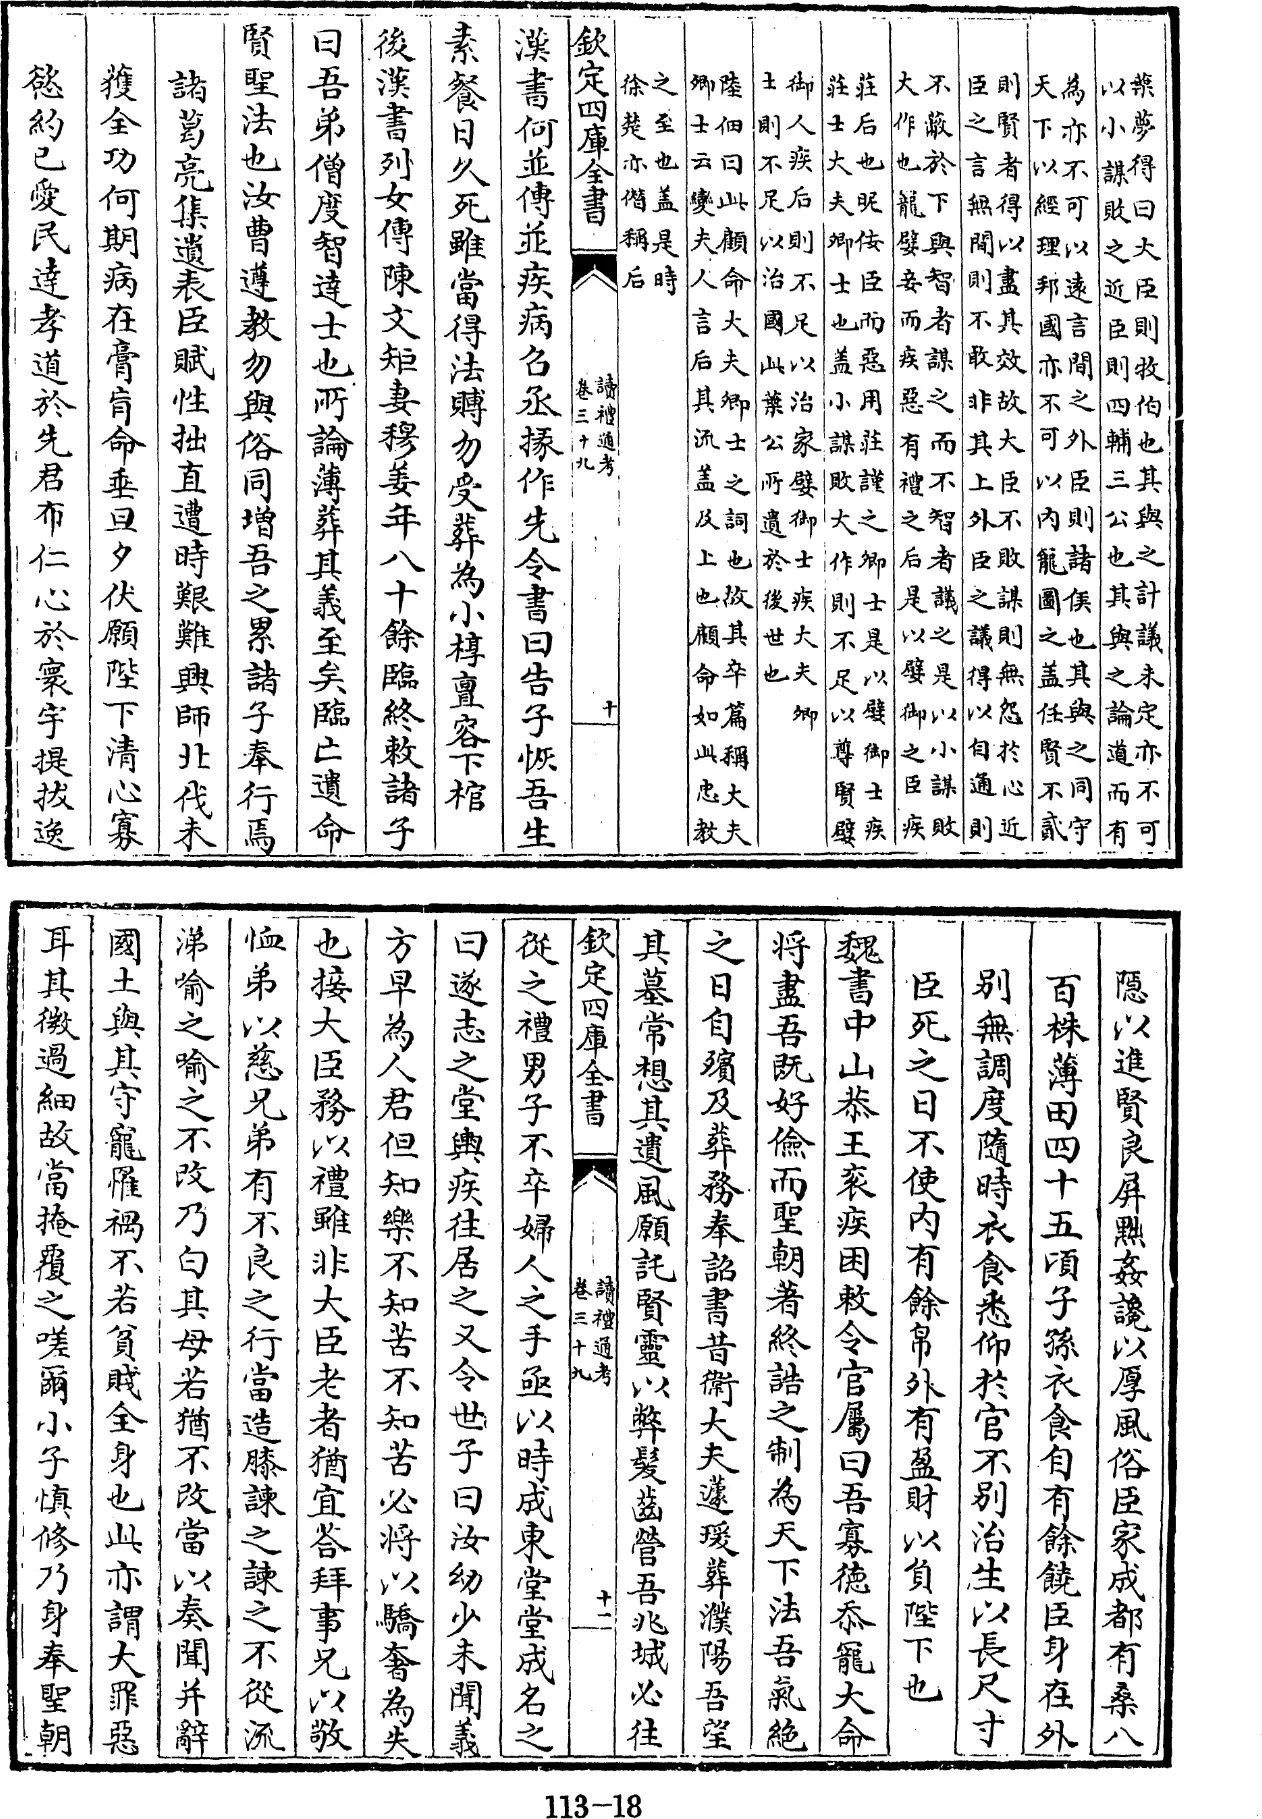 葉夢得曰大臣則牧伯也其與之計議未定亦不可
以小謀敗之近臣則四輔三公也其與之論道而有
為亦不可以遠言間之外臣則諸侯也其與之同守
天下以經理邦國亦不可以内寵圖之盖任賢不貳
則賢者得以盡其效故大臣不敗謀則無怨於心近
臣之言無間則不敢非其上外臣之議得以自通則
不蔽於下與智者謀之而不智者議之是以小謀敗
大作也寵嬖妾而疾惡有禮之后是以嬖御之臣疾
莊后也昵佞臣而惡用莊謹之卿士是以嬖御士疾
莊士大夫卿士也盖小謀敗大作則不足以尊賢嬖
御人疾后則不足以治家嬖御士疾大夫卿
士則不足以治國此葉公所遺於後世也
陸佃曰此顧命大夫卿士之詞也故其卒篇稱大夫
卿士云孌夫人言后其流盖及上也顧命如此忠教
之至也盖是時
徐楚亦僣稱后
欽定四庫全書
讀禮通考
卷三十九
十
漢書何並傳並疾病召丞掾作先令書曰告子恢吾生
素餐日久死雖當得法賻勿受葬為小椁亶容下棺
後漢書列女傳陳文矩妻穆姜年八十餘臨終敕諸子
曰吾弟僧度智達士也所論薄葬其義至矣臨亡遺命
賢聖法也汝曹遵教勿與俗同增吾之累諸子奉行焉
諸葛亮集遺表臣賦性拙直遭時艱難興師北伐未
獲全功何期病在膏肓命垂旦夕伏願陛下清心寡
慾約己愛民達孝道於先君布仁心於寰宇提拔逸
隱以進賢良屏黜姦讒以厚風俗臣家成都有桑八
百株薄田四十五頃子孫衣食自有餘饒臣身在外
别無調度隨時衣食悉仰於官不别治生以長尺寸
臣死之日不使内有餘帛外有盈財以負陛下也
魏書中山恭王衮疾困敕令官屬曰吾寡徳忝寵大命
将盡吾既好儉而聖朝著終誥之制為天下法吾氣絶
之日自殯及葬務奉詔書昔衛大夫蘧瑗葬濮陽吾望
其墓常想其遺風願託賢靈以弊髮齒營吾兆域必往
欽定四庫全書
讀禮通考
卷三十九
十一
從之禮男子不卒婦人之手亟以時成東堂堂成名之
曰遂志之堂輿疾往居之又令世子曰汝幼少未聞義
方早為人君但知樂不知苦不知苦必将以驕奢為失
也接大臣務以禮雖非大臣老者猶宜答拜事兄以敬
恤弟以慈兄弟有不良之行當造膝諫之諫之不從流
涕喻之喻之不改乃白其母若猶不改當以奏聞并辭
國土與其守寵罹禍不若貧賤全身也此亦謂大罪惡
耳其微過細故當掩覆之嗟爾小子慎修乃身奉聖朝
113-18